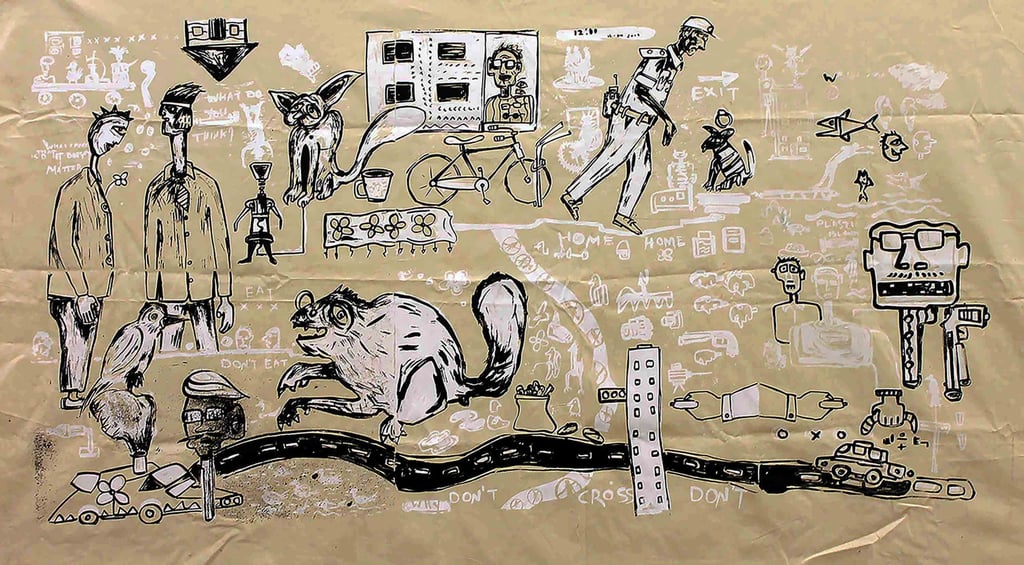 12:00
WHAT DO
YOU
THINK?
WHAT YOU
IT DOES
MATTER
EXIT
W
HOME HOME
PLASTIC
EAT
DON'T EAT
DON'T CROSS DON'T